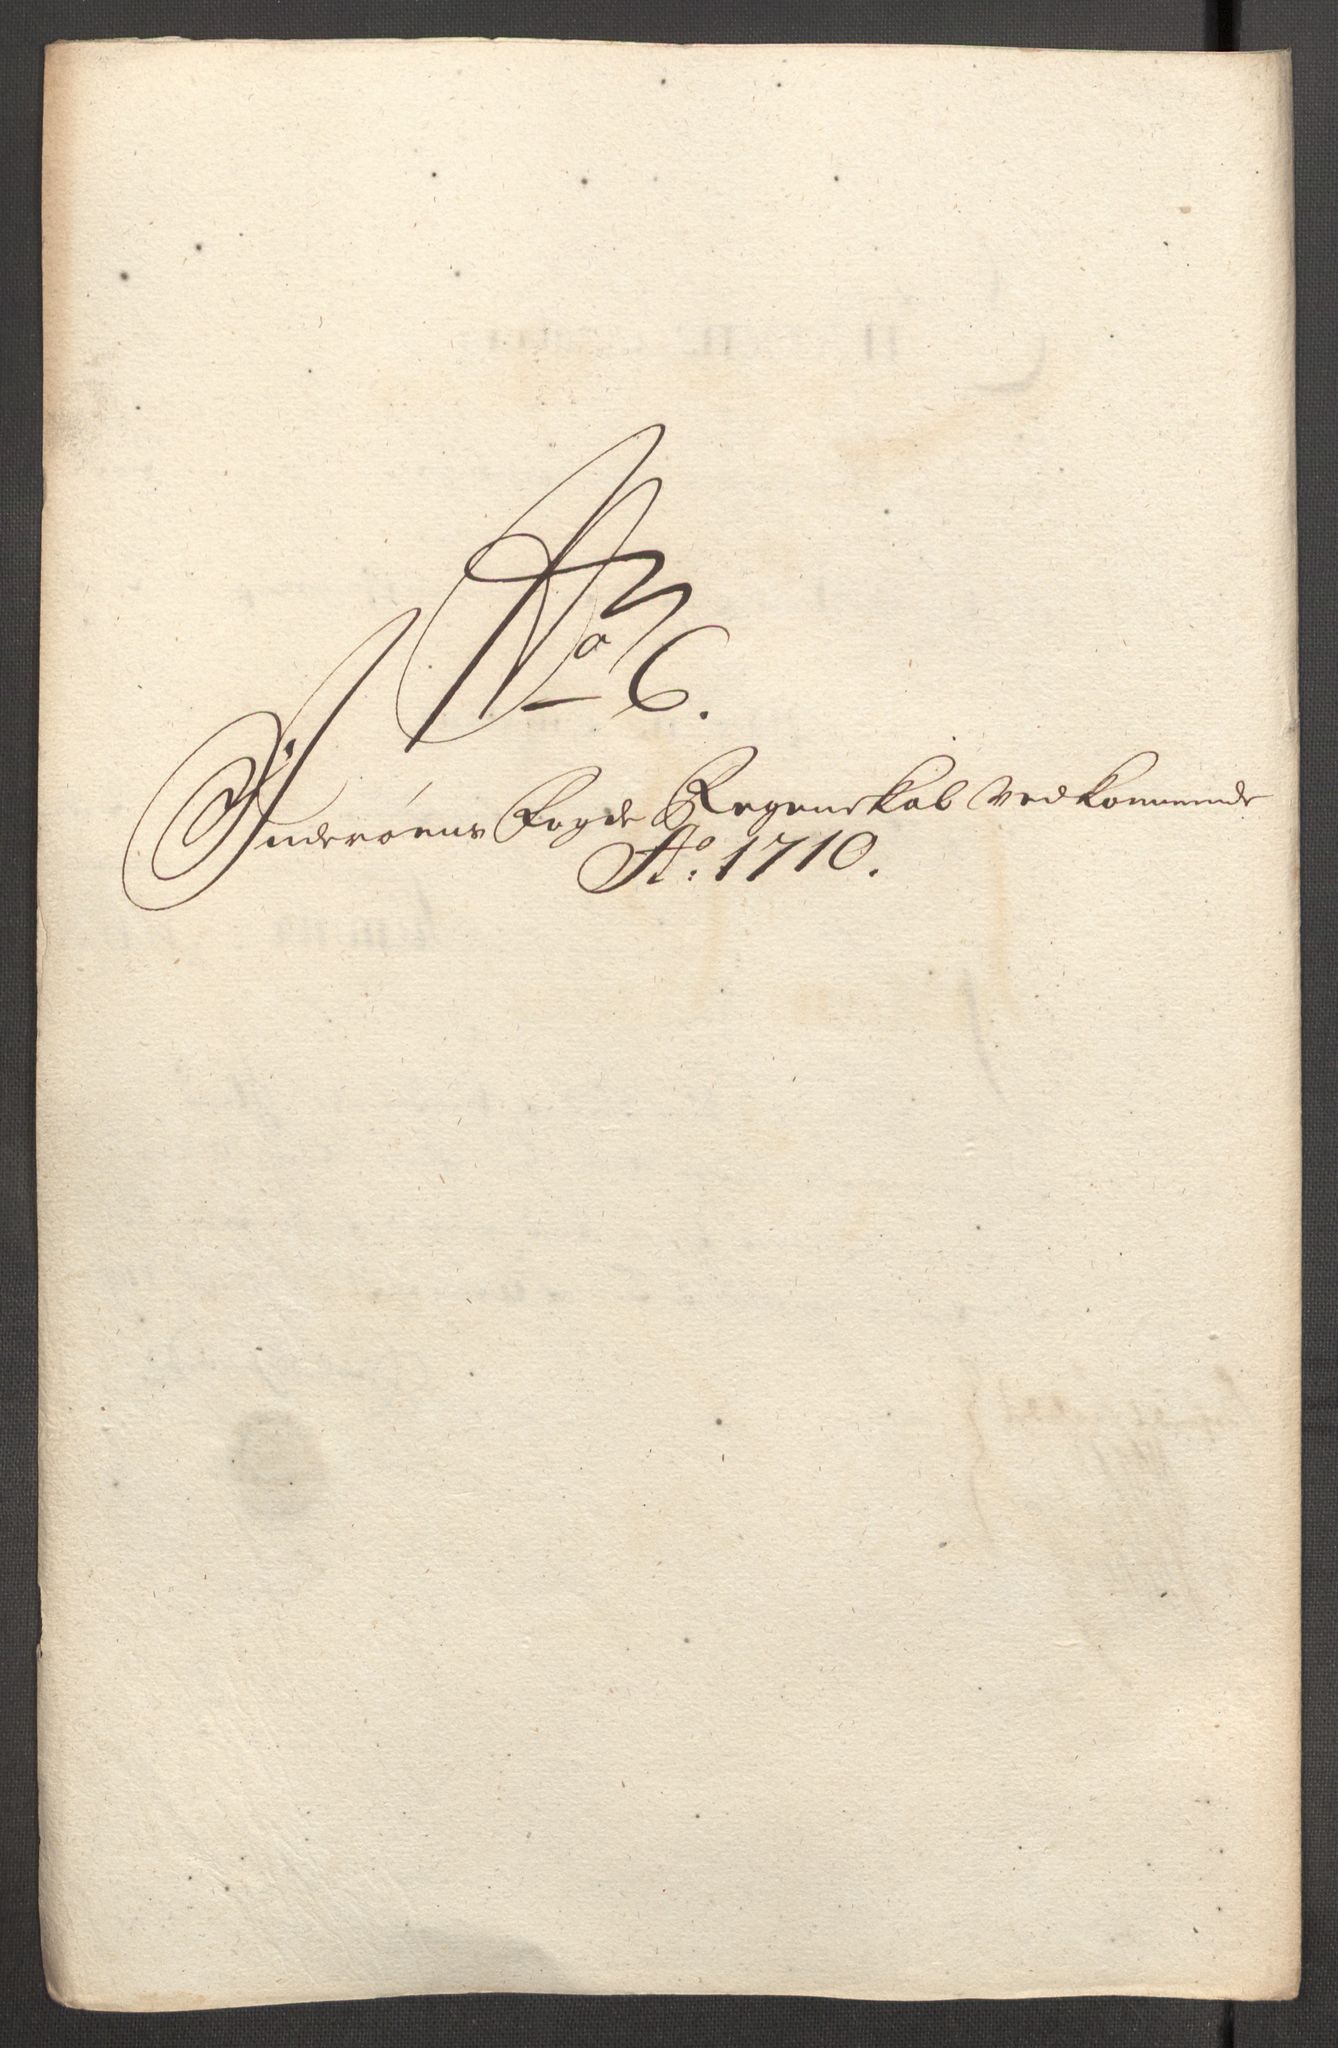 No 6.
Inderøens Fogde Regenskab Vedkommende
Ao. 1710.